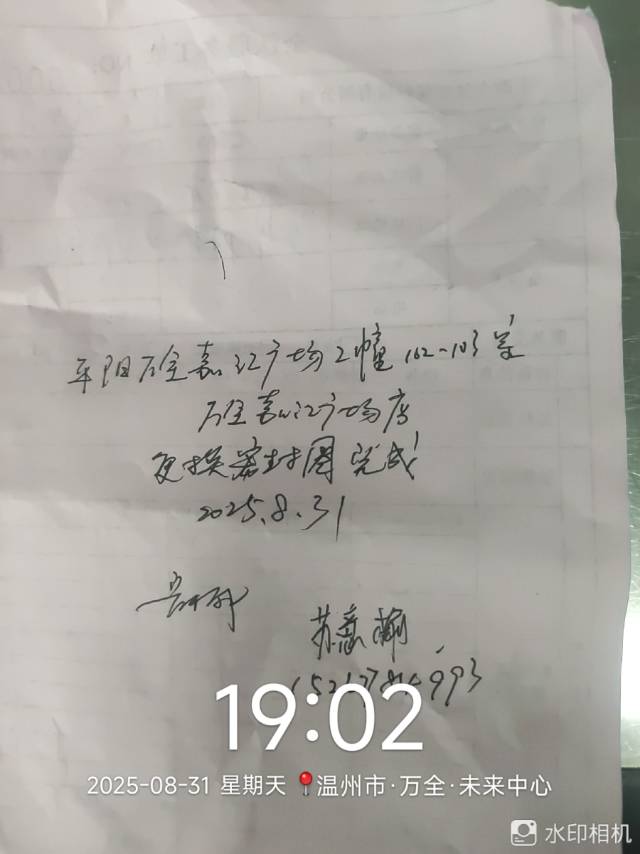 平阳万全嘉江广场2幢102-103号
万全嘉江广场店
更换密封圈完成
2025.8.31
苏意
19:02
2025-08-31 星期天 温州市·万全·未来中心
水印相机